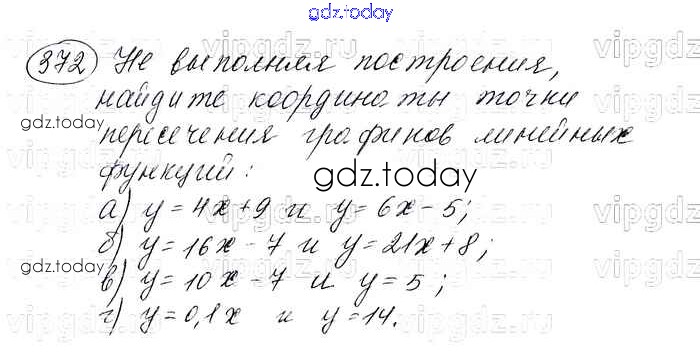 gdz.today
372 Не выполняя построения,
найдите координаты точки
gdz.today
пересечения графиков линейных
функций:
gdz.today
а) y = 4x + 9 и y = 6x - 5;
б) y = 16x - 7 и y = 21x + 8;
gdz.today
в) y = 10x - 7 и y = 5;
г) y = 0,1x и y = 14.